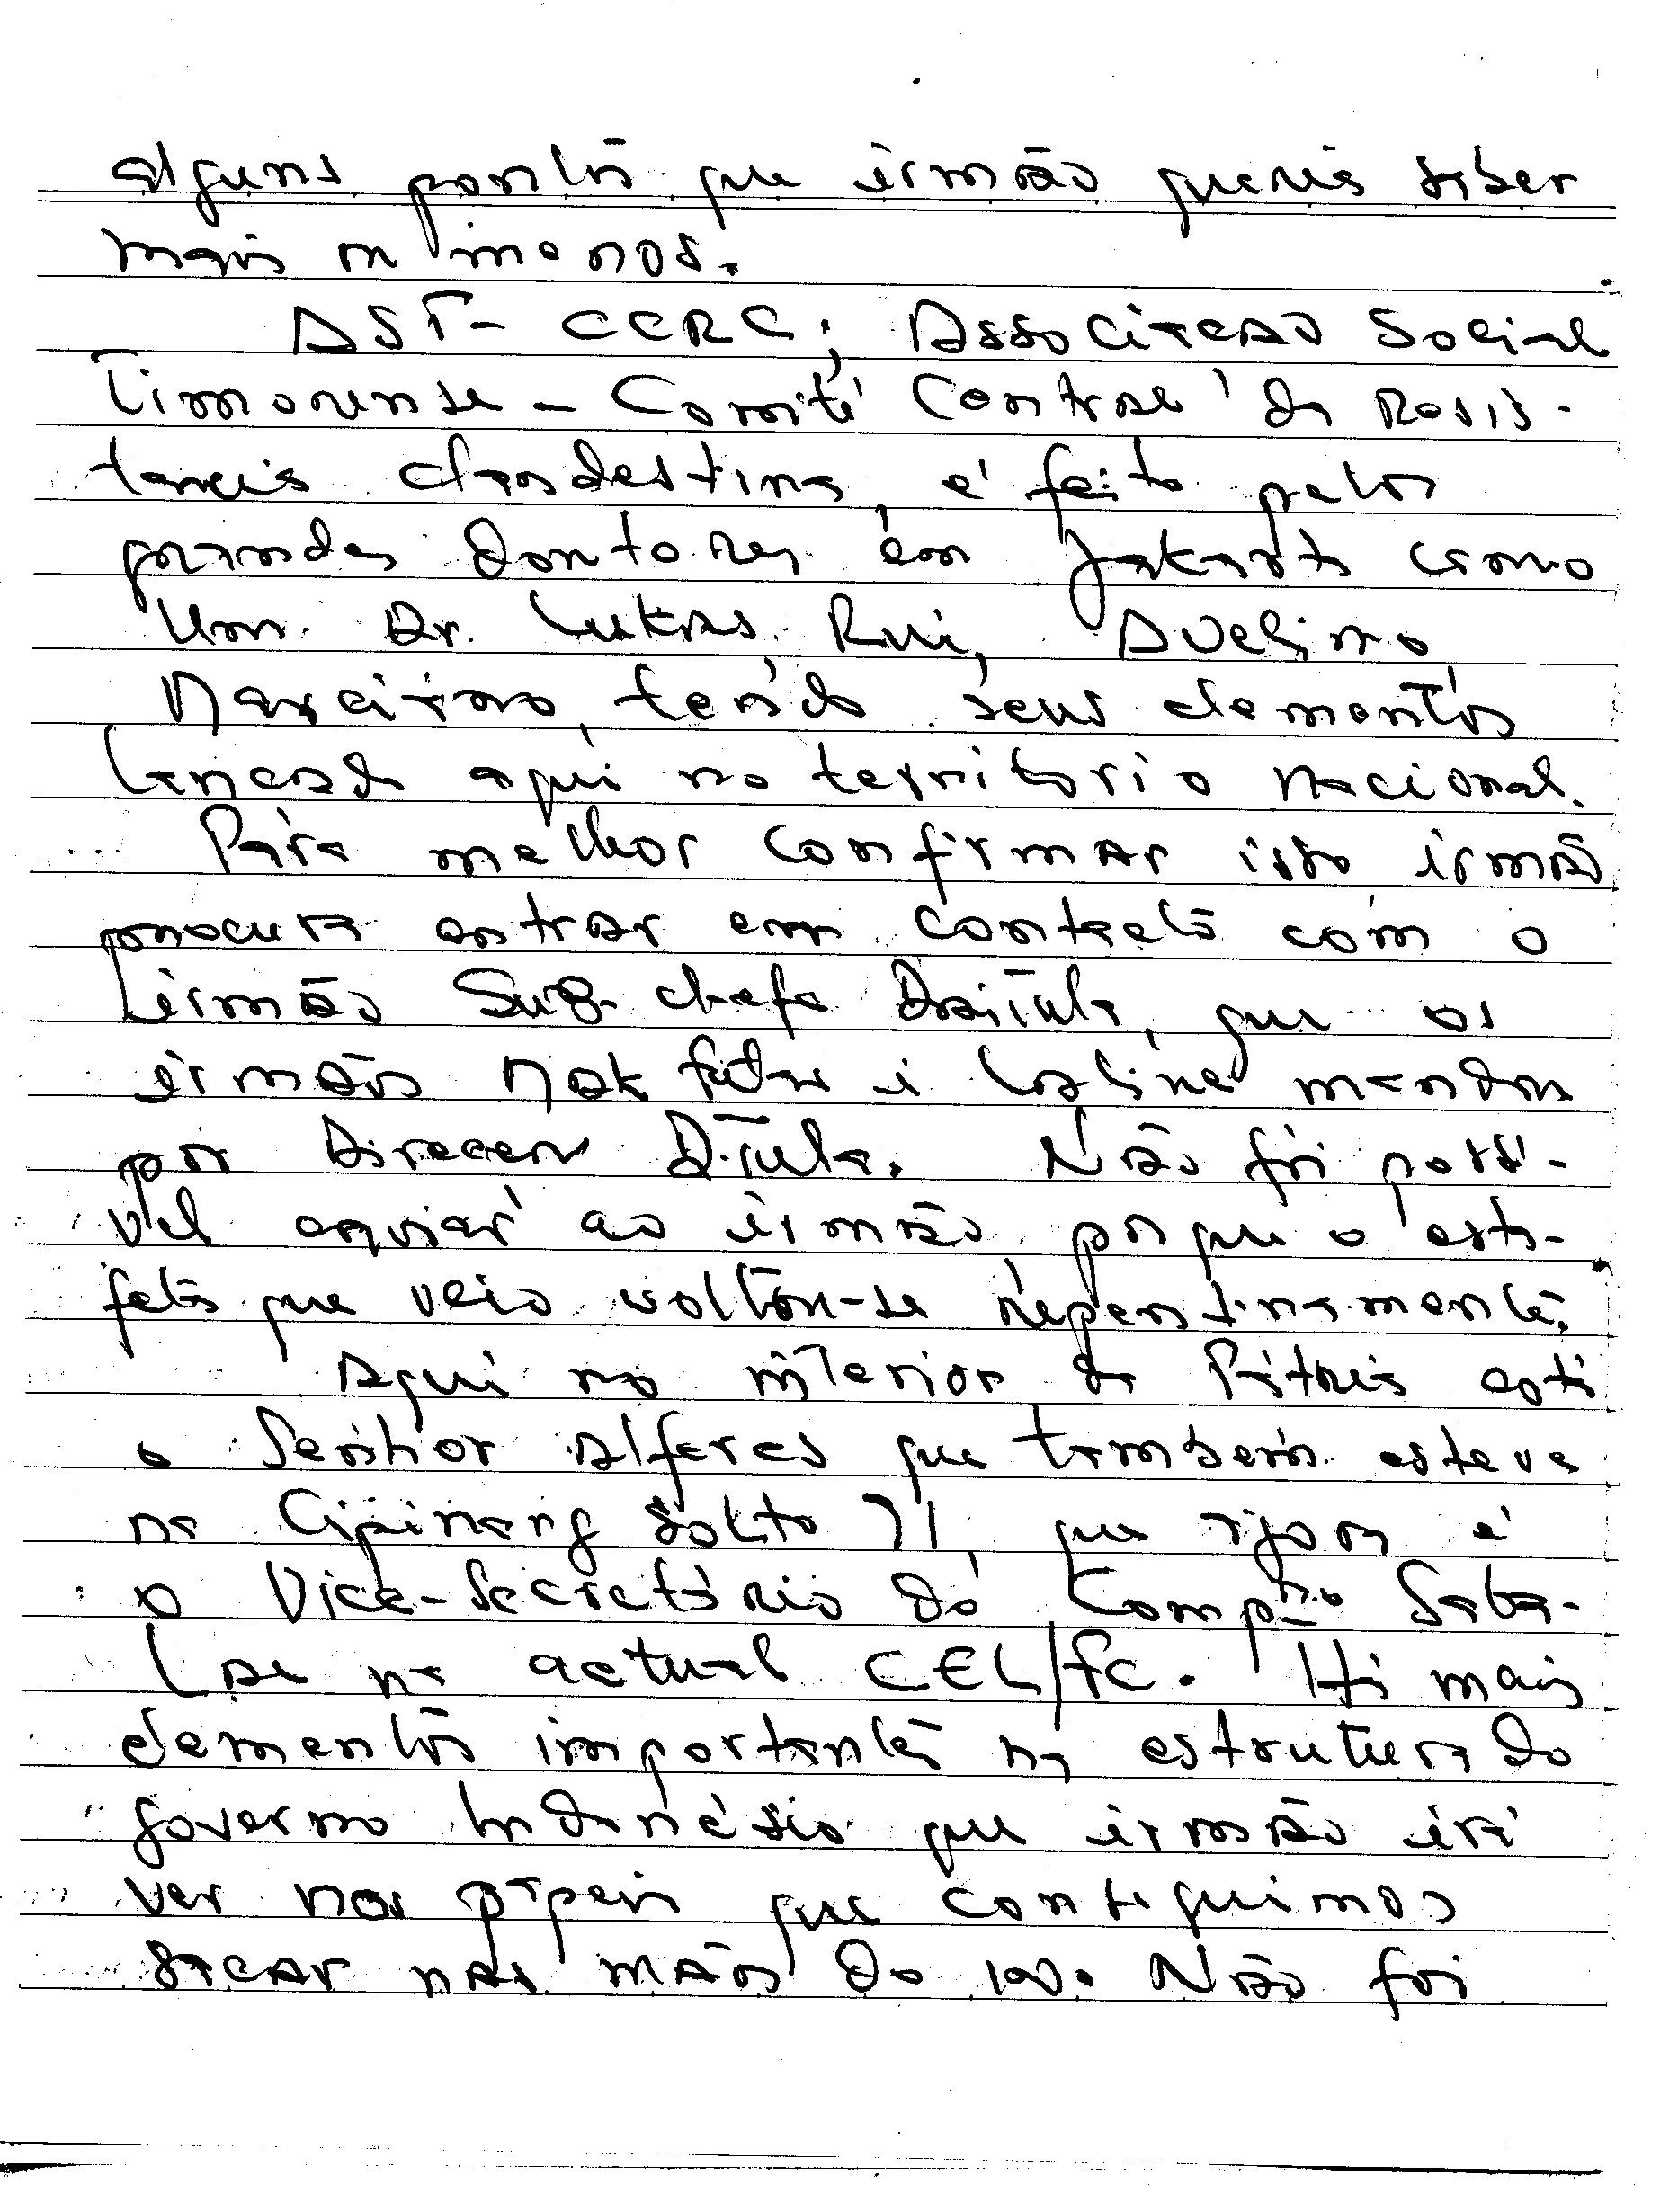 alguns pontos que irmão queria saber
mais ou menos.
AST - CCRC; Associacão Social
Timorense - Comité Central da Resis-
tencia clandestina, é feito pelos
grandes doutores em Jakarta como
um Dr. Lukas, Rui, Avelino
tendo seus elementos
aqui no territorio nacional.
Para melhor confirmar isto irmão
procura entrar em contacto com o
irmão Sub-chefe que os
irmãos Mak fuduk i mandou
por Não foi possi-
vel enviar ao irmão porque o esta-
feta que veio voltou-se repentinamente.
Aqui no interior da Pátria está
o Senhor Alferes que tambem esteve
na Cipinang que agora é
o Vice-Secretário do
na actual CEL/FC. Há mais
elementos importantes na estrutura do
governo Indonésio que irmão irá
ver nos papeis que conseguimos
sacar nas mãos do Não foi